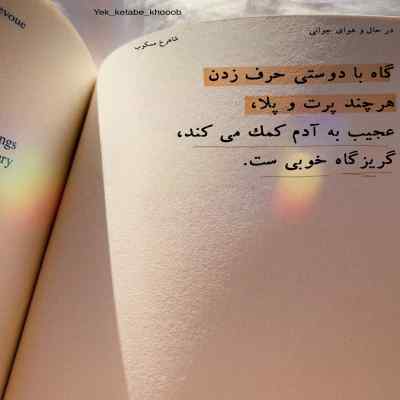 Yek_ketabe_khooob
در حال و هوای جوانی
شاهرخ مسکوب
گاه با دوستی حرف زدن
هرچند پرت و پلا،
عجیب به آدم کمک می کند،
گریزگاه خوبی ست.
evoue
ngs
ery